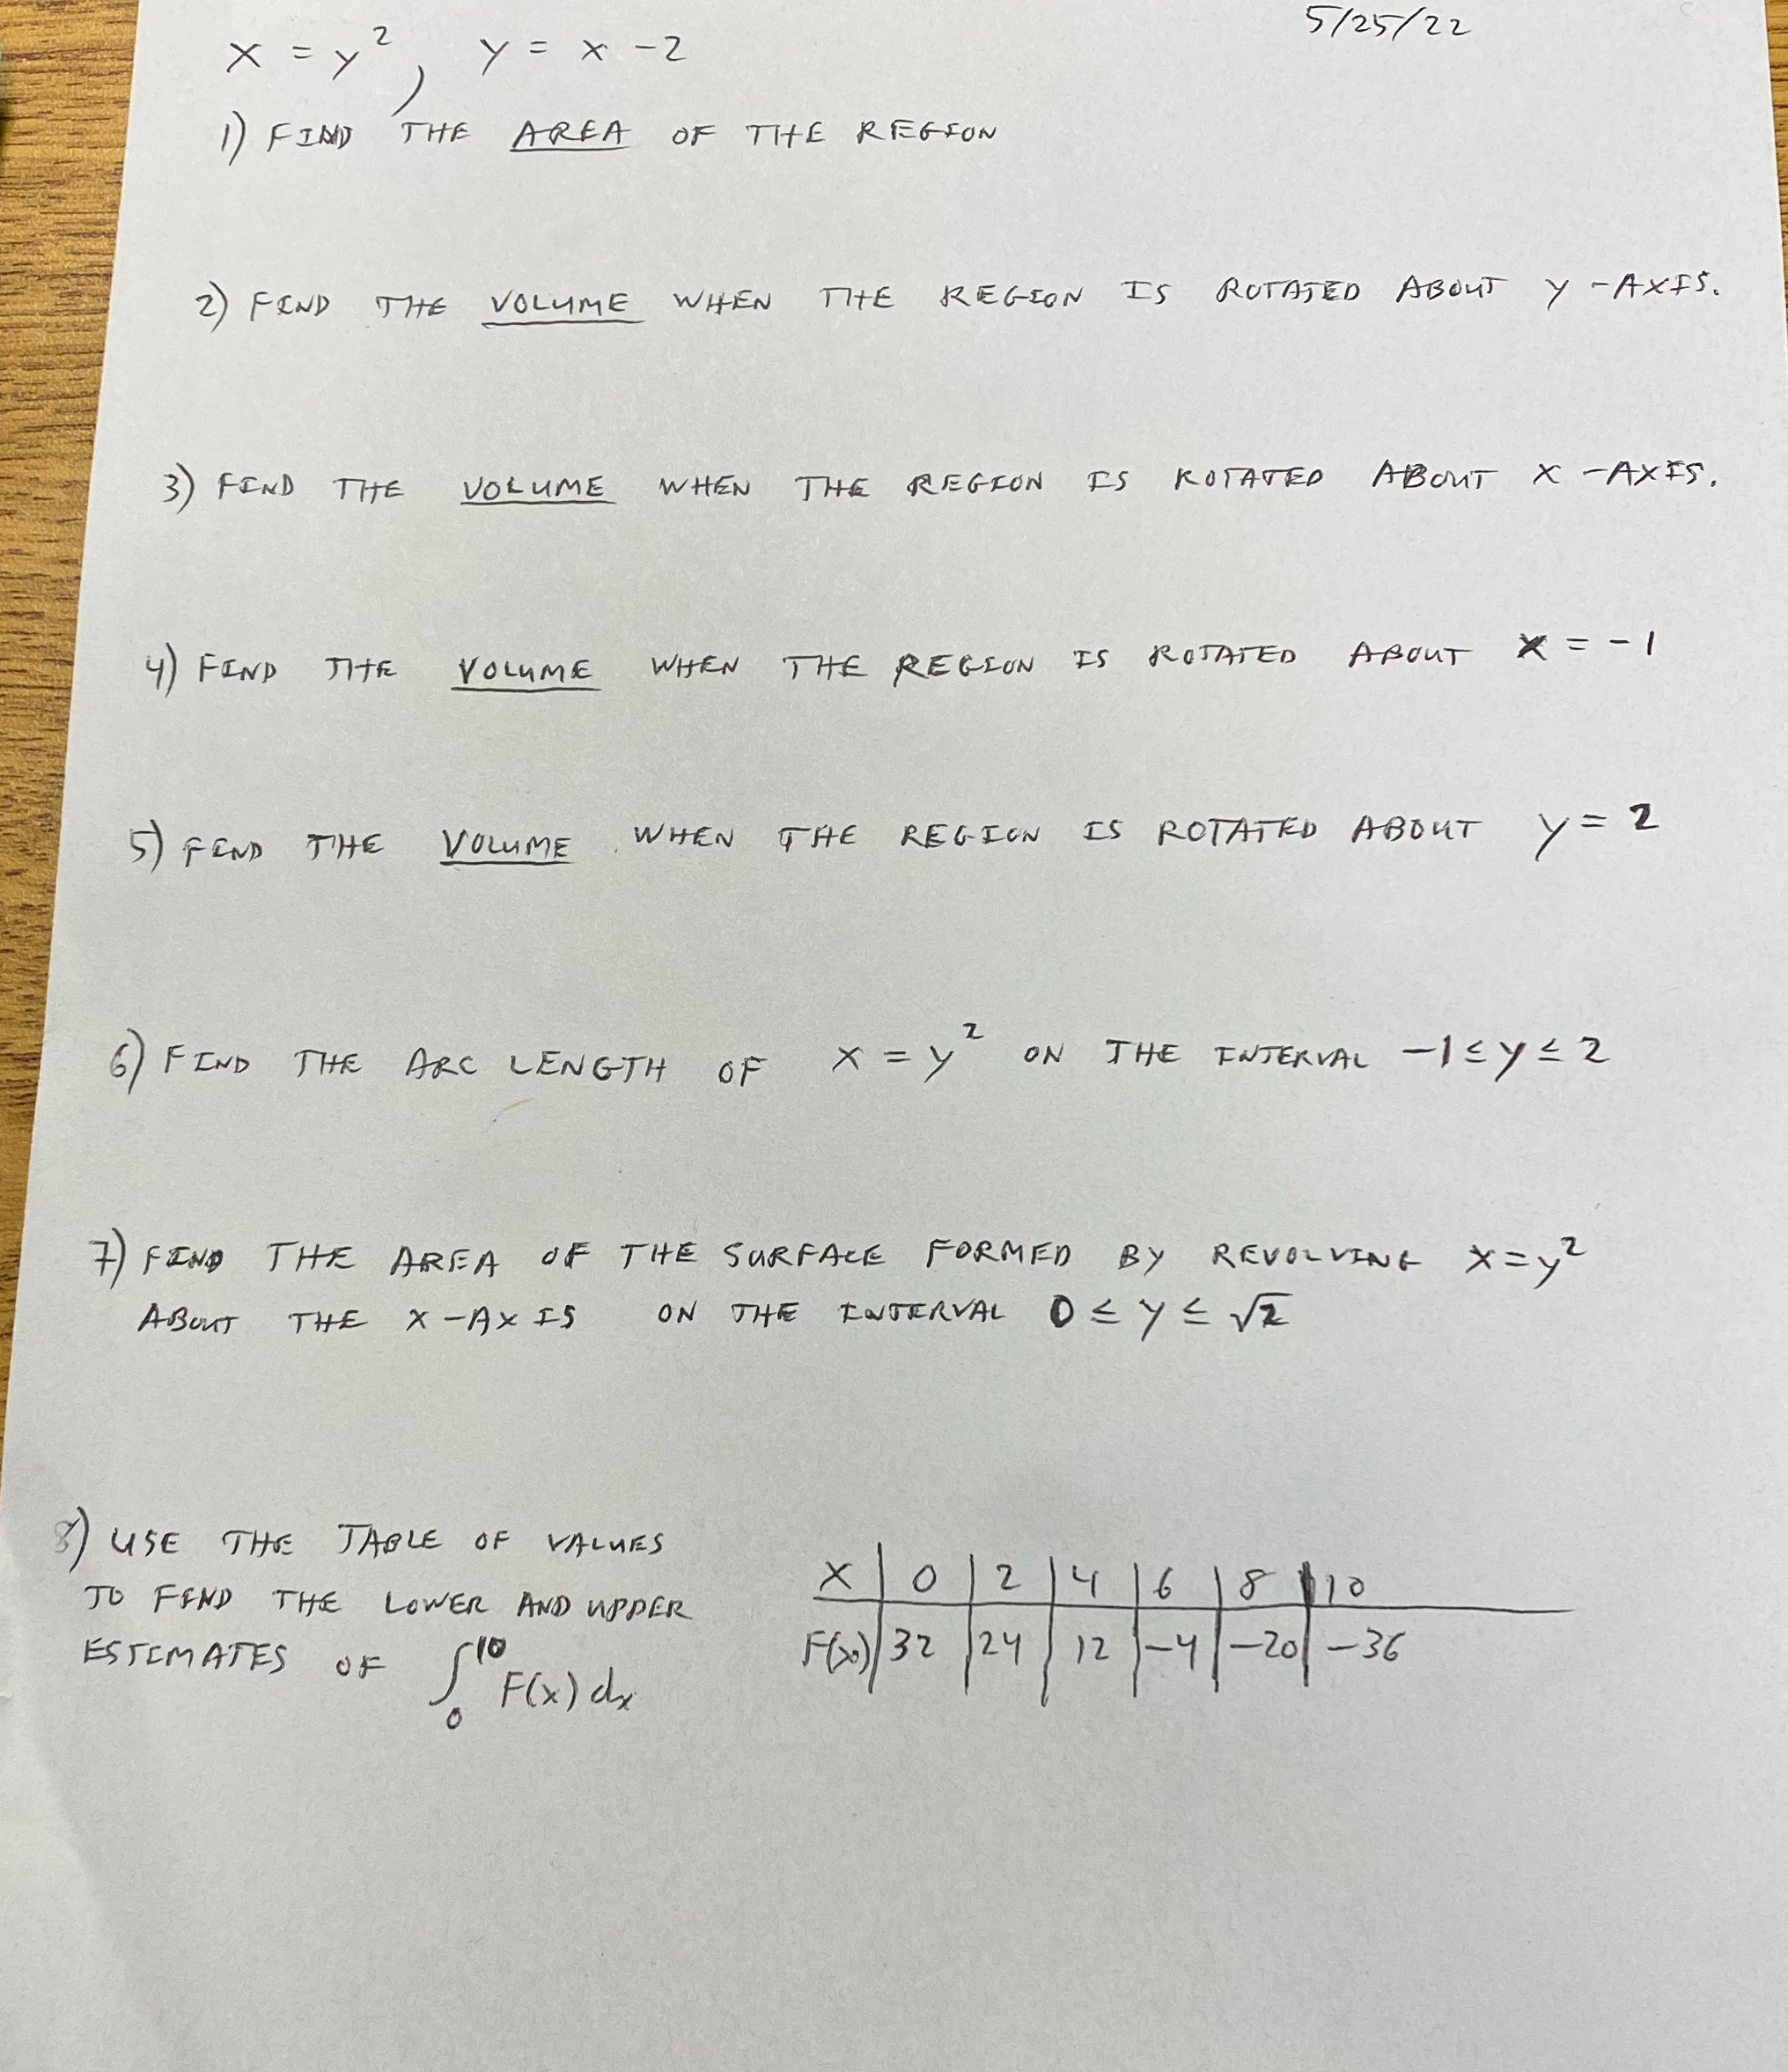 5/25/22
x = y², y = x - 2
1) FIND THE AREA OF THE REGION
2) FIND THE VOLUME WHEN THE REGION IS ROTATED ABOUT y-AXIS.
3) FIND THE VOLUME WHEN THE REGION IS ROTATED ABOUT x-AXIS.
4) FIND THE VOLUME WHEN THE REGION IS ROTATED ABOUT x = -1
5) FIND THE VOLUME WHEN THE REGION IS ROTATED ABOUT y = 2
6) FIND THE ARC LENGTH OF x = y² ON THE INTERVAL -1 ≤ y ≤ 2
7) FIND THE AREA OF THE SURFACE FORMED BY REVOLVING x = y²
ABOUT THE x-AXIS ON THE INTERVAL 0 ≤ y ≤ √2
8) USE THE TABLE OF VALUES
TO FIND THE LOWER AND UPPER
ESTIMATES OF ∫₀¹⁰ F(x) dx
x | 0 | 2 | 4 | 6 | 8 | 10
F(x) | 32 | 24 | 12 | -4 | -20 | -36